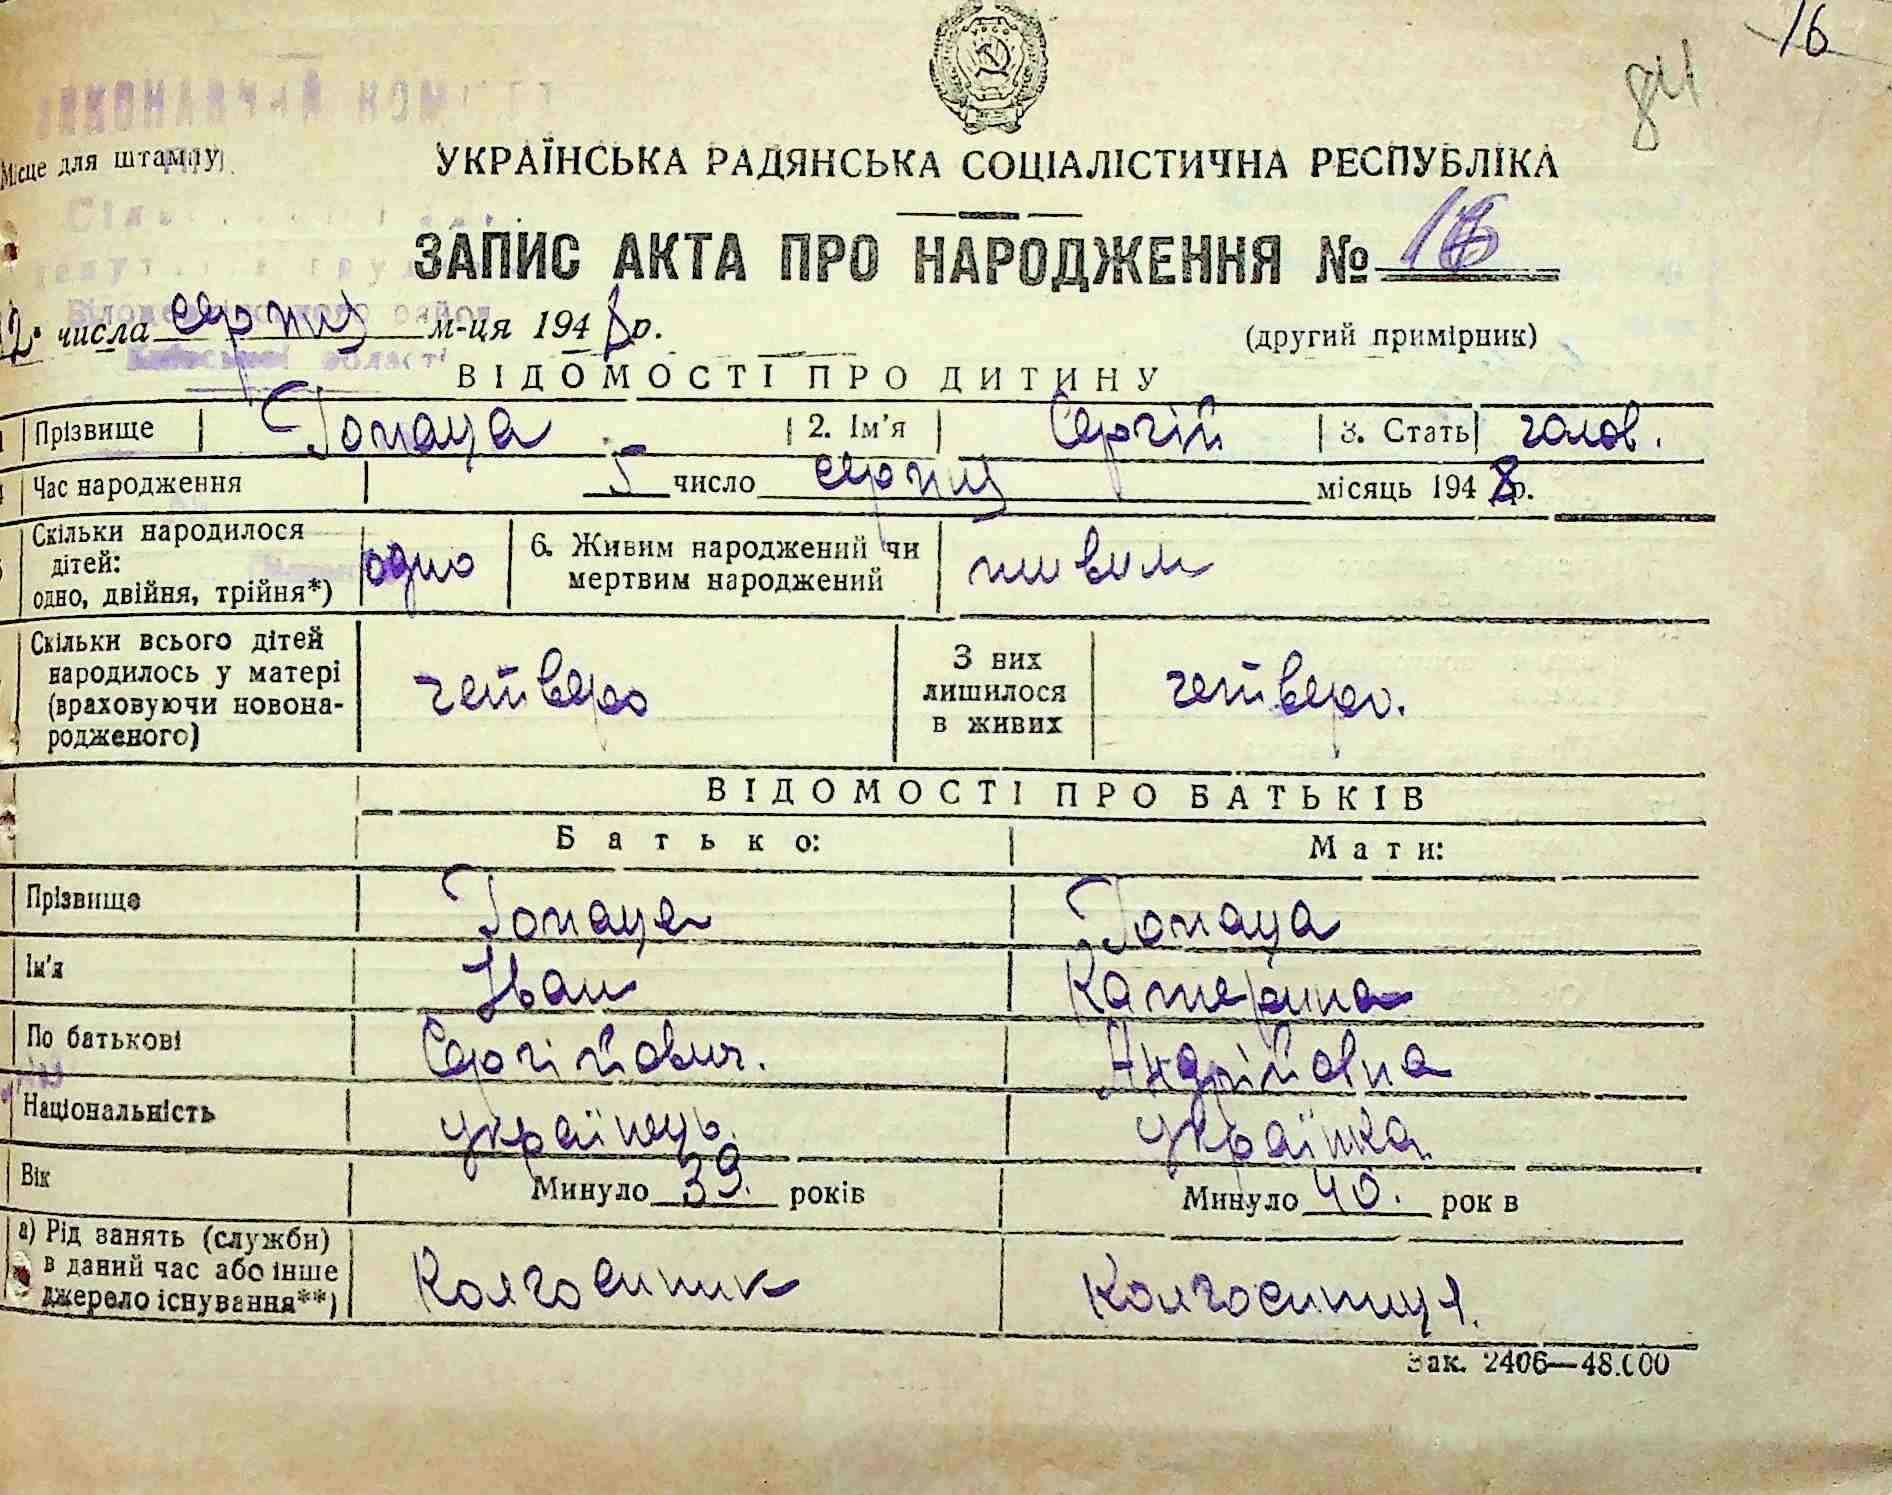 16
84
ВИКОНАВЧИЙ КОМІТЕТ
Місце для штампу
УКРАЇНСЬКА РАДЯНСЬКА СОЦІАЛІСТИЧНА РЕСПУБЛІКА
ЗАПИС АКТА ПРО НАРОДЖЕННЯ № 16
12. числа серпня м-ця 1948 р.
(другий примірник)
Київської області
ВІДОМОСТІ ПРО ДИТИНУ
Прізвище Гопаца 2. Ім'я Сергій 3. Стать чолов.
Час народження 5 число серпня місяць 1948 р.
Скільки народилося дітей: одно, двійня, трійня*) одно 6. Живим народжений чи мертвим народжений живим
Скільки всього дітей народилось у матері (враховуючи новонародженого) четверо З них лишилося в живих четверо.
ВІДОМОСТІ ПРО БАТЬКІВ
Батько: Мати:
Прізвище Гопаца Гопаца
Ім'я Іван Катерина
По батькові Сергійович. Андріївна
Національність українець. українка.
Вік Минуло 39. років Минуло 40. рок в
а) Рід занять (служби) в даний час або інше джерело існування**) Колгоспник Колгоспниця.
Зак. 2406—48.000